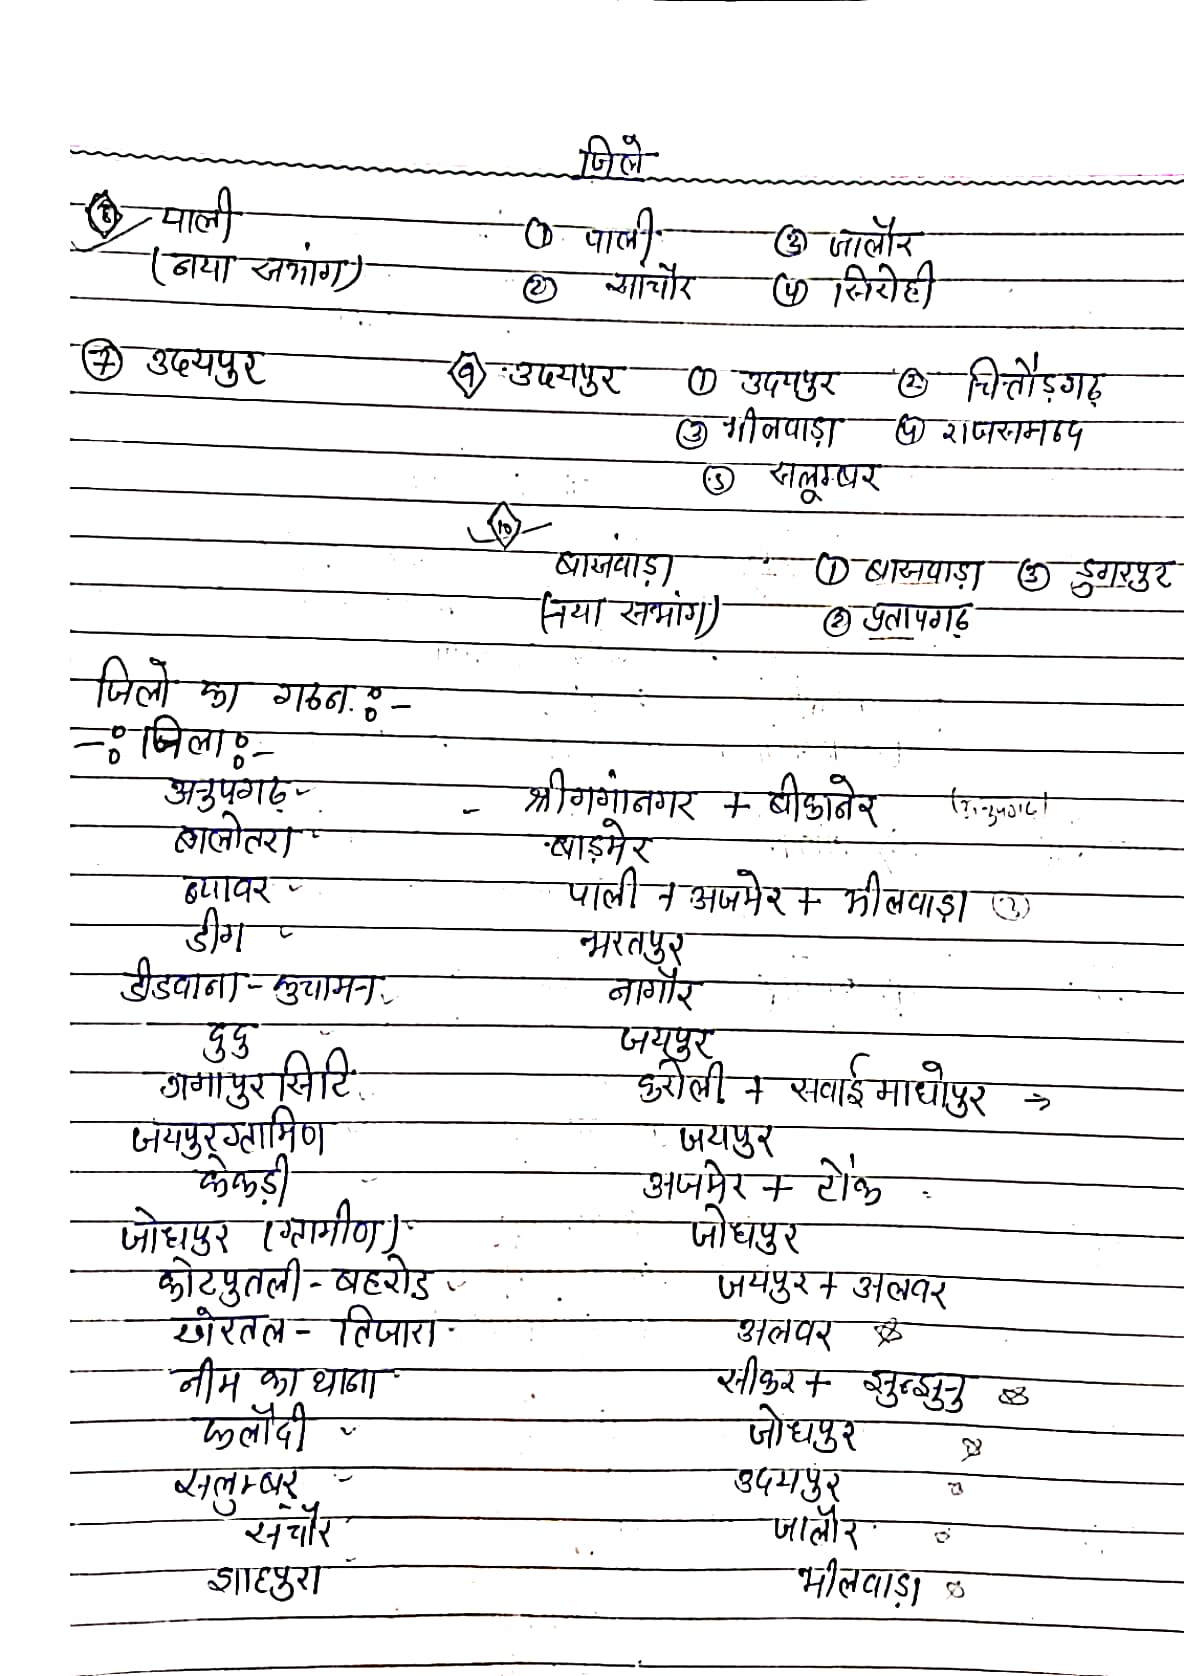 जिले
⑧ पाली ① पाली ③ जालौर
(नया सभांग) ② सांचौर ④ सिरोही
⑦ उदयपुर ⑨ उदयपुर ① उदयपुर ② चित्तौड़गढ़
③ भीलवाड़ा ④ राजसमन्द
⑤ सलूम्बर
⑩
बासंवाड़ा ① बासवाड़ा ③ डुगरपुर
(नया सभांग) ② प्रतापगढ़
जिलो का गठन :-
-: जिला :-
अनुपगढ़ - श्रीगगांनगर + बीकानेर (अनुपगढ)
बालोतरा बाड़मेर
ब्यावर पाली + अजमेर + भीलवाड़ा ③
डीग भरतपुर
डीडवाना - कुचामन नागौर
दुदु जयपुर
गगापुर सिटि करोली + सवाई माधोपुर →
जयपुर ग्रामिण जयपुर
केकड़ी अजमेर + टोंक
जोधपुर (ग्रामीण) जोधपुर
कोटपुतली - बहरोड जयपुर + अलवर
खेरतल - तिजारा अलवर
नीम का थाना सीकर + झुन्झुनु
फलौदी जोधपुर
सलुम्बर उदयपुर
संचौर जालौर
शाहपुरा भीलवाड़ा